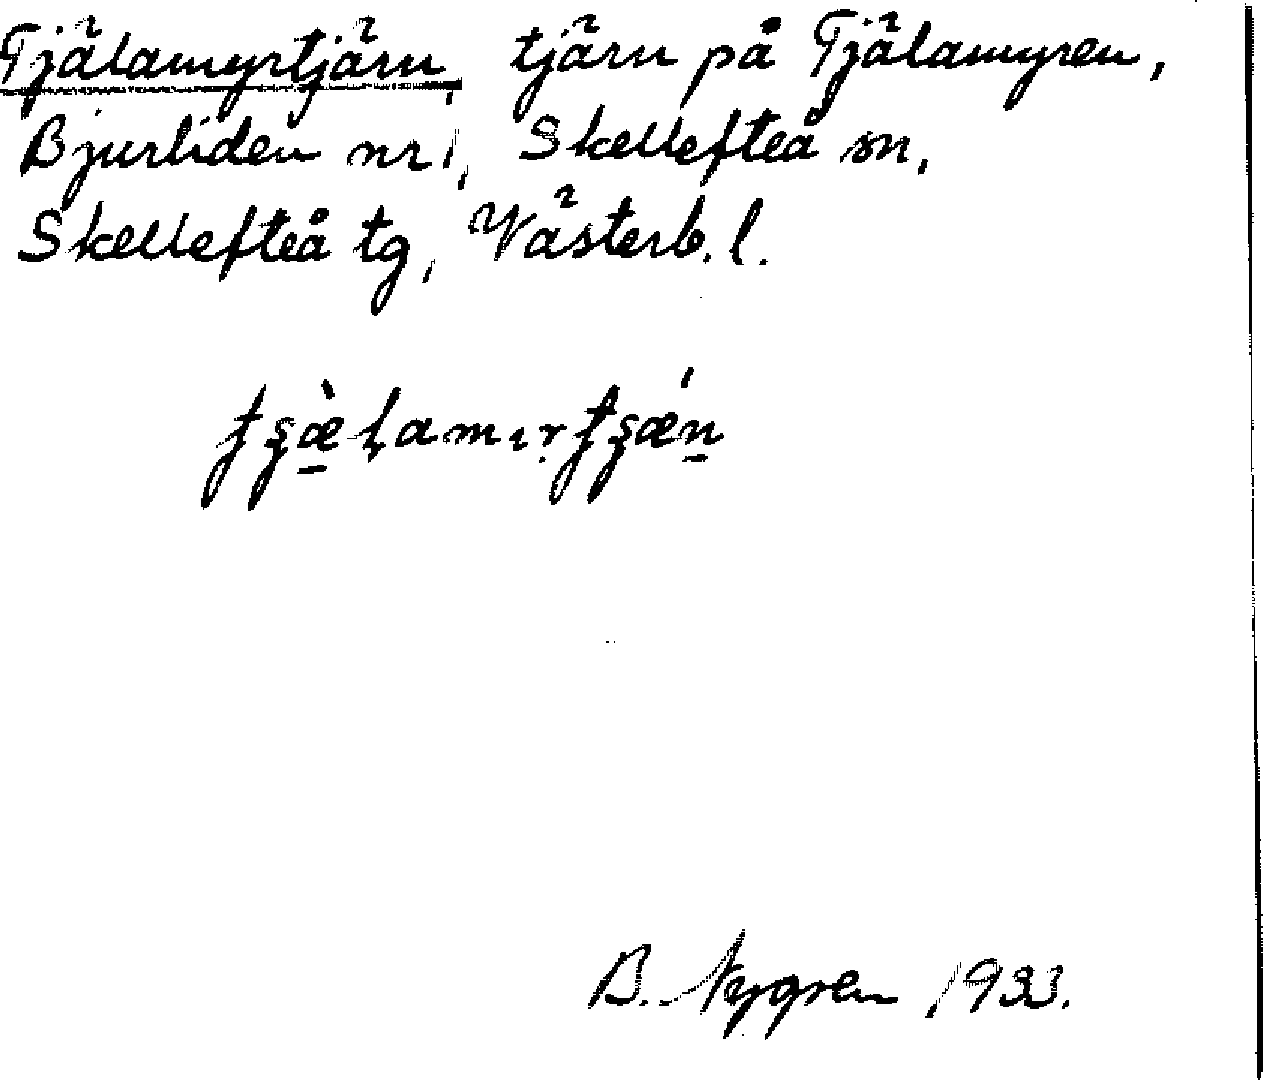 Tjälamyrtjärn, tjärn på Tjälamyren,
Bjurliden nr 1, Skellefteå sn,
Skellefteå tg, Västerb. l.
B. Nygren 1933.